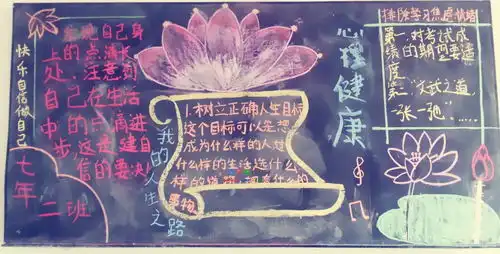 快乐自信做自己
发现自己身
上的点滴长
处,注意到
自己在生活
中的点滴进
步,这是建自
信的要决!
七年二班
我的人生之路
1.树立正确人生目标
这个目标可以是想
成为什么样的人过
什么样的生活选什么
样的道路
事物
心理健康
排除学习焦虑情绪
第一.对考试成
绩的期望要适
度
第二."文武之道
一张一弛".....